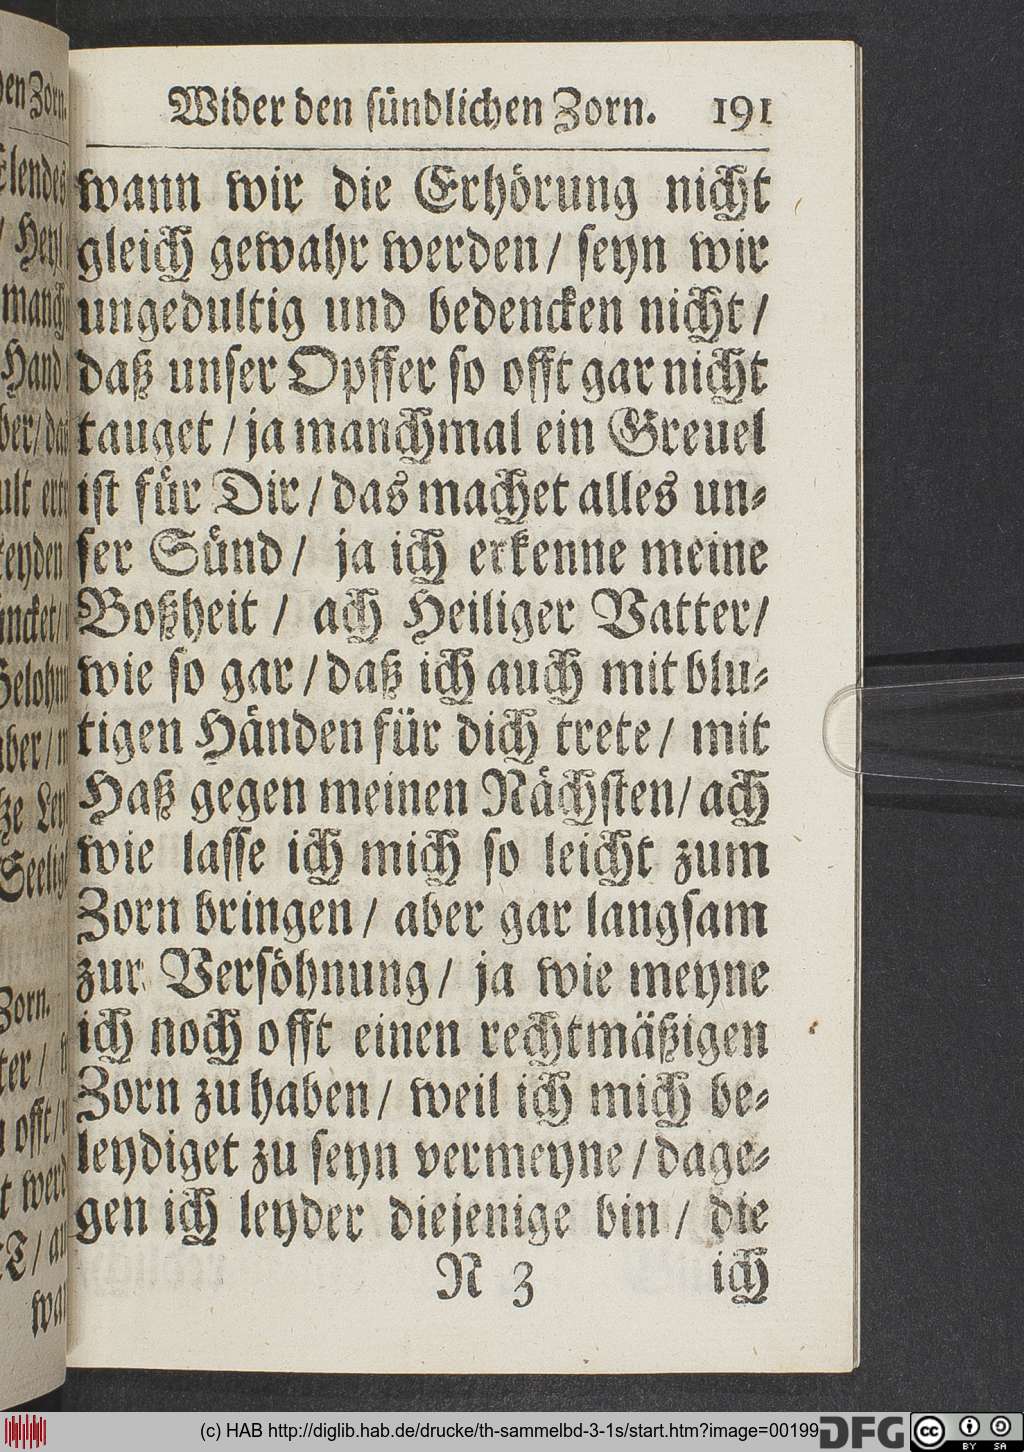 Wider den sündlichen Zorn. 191
wann wir die Erhörung nicht
gleich gewahr werden / seyn wir
ungedultig und bedencken nicht /
daß unser Opffer so offt gar nicht
tauget / ja manchmal ein Greuel
ist für Dir / das machet alles un-
ser Sünd / ja ich erkenne meine
Boßheit / ach Heiliger Vatter /
wie so gar / daß ich auch mit blu-
tigen Händen für dich trete / mit
Haß gegen meinen Nächsten / ach
wie lasse ich mich so leicht zum
Zorn bringen / aber gar langsam
zur Versöhnung / ja wie meyne
ich noch offt einen rechtmäßigen
Zorn zu haben / weil ich mich be-
leydiget zu seyn vermeyne / dage-
gen ich leyder diejenige bin / die
N 3 ich
(c) HAB http://diglib.hab.de/drucke/th-sammelbd-3-1s/start.htm?image=00199
DFG
cc BY SA